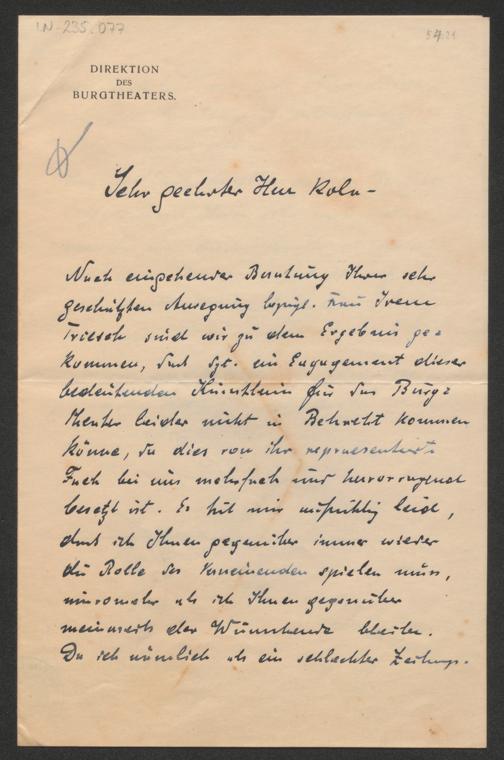 IN-235.077
DIREKTION
DES
BURGTHEATERS.
Sehr geehrter Herr Kola –
Nach eingehender Beratung Ihrer sehr
geschätzten Anregung bezügl. Frau Irene
Triesch sind wir zu dem Ergebnis ge=
kommen, dass dzt. ein Engagement dieser
bedeutenden Künstlerin für das Burg=
theater leider nicht in Betracht kommen
könne, da dies von ihr repraesentierte
Fach bei uns mehrfach und hervorragend
besetzt ist. Es tut mir aufrichtig leid,
dass ich Ihnen gegenüber immer wieder
die Rolle des Verneinenden spielen muss,
umsomehr als ich Ihnen gegenüber
meinerseits der Wünschende bleibe.
Da ich nämlich als ein schlechter Zeitungs-